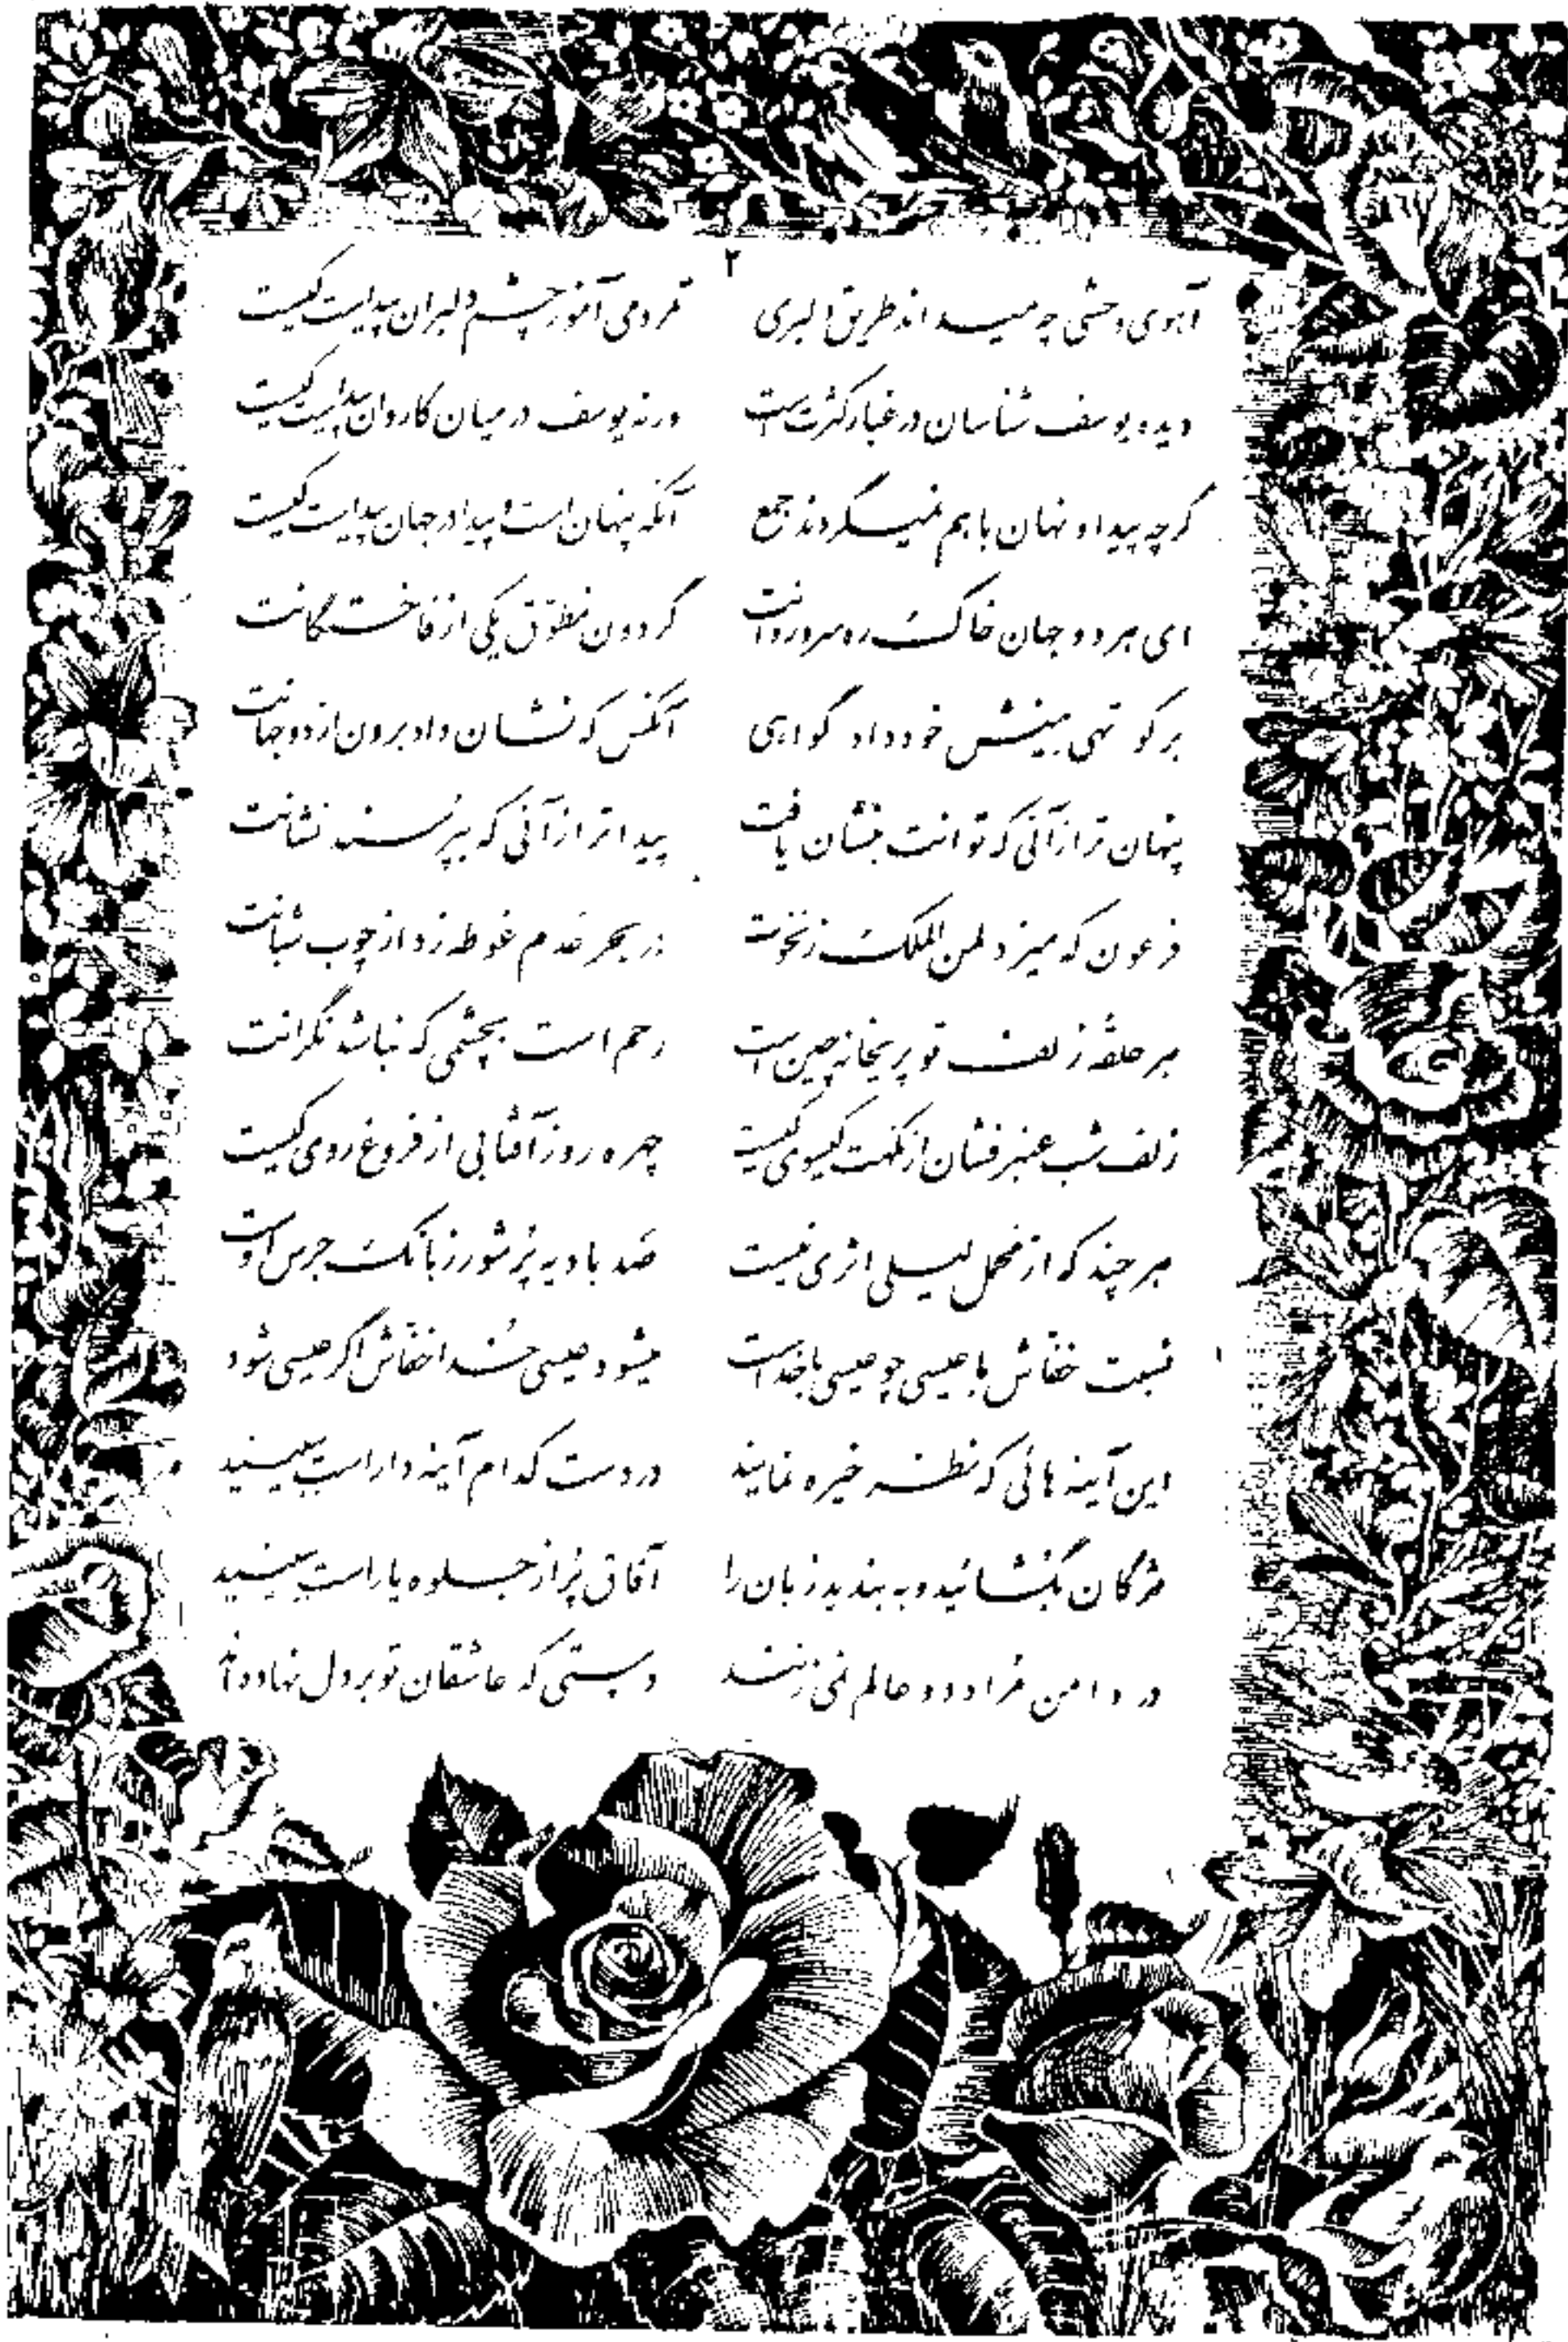 ۲
آهوی وحشی چه میداند طریق دلبری    مردمی آموز چشم دلبران پیداست کیست
دیده یوسف شناسان در غبار کثرت است    ورنه یوسف در میان کاروان پیداست کیست
گرچه پیدا و نهان باهم نمیگردند جمع    آنکه پنهان است و پیدا در جهان پیداست کیست
ای هر دو جهان خاک ره سرو روانت    گردون مطوق یکی از فاختگانت
بر کوتهی بینش خود داد گواهی    آنکس که نشان داد برون از دو جهانت
پنهان تر از آنی که توانت بنشان یافت    پیداتر از آنی که بپرسند نشانت
فرعون که میزد لمن الملک ز نخوت    در بحر عدم غوطه زد از چوب شبانت
هر حلقه زلف تو پریخانه چین است    رحم است بچشمی که نباشد نگرانت
زلف شب عنبرفشان از نکهت گیسوی کیست    چهره روز آفتابی از فروغ روی کیست
هر چند که از محمل لیلی اثری نیست    صد بادیه پر شور ز بانگ جرس اوست
نسبت خفاش با عیسی چو عیسی با خداست    میشود عیسی خدا خفاش اگر عیسی شود
این آینه هائی که نظر خیره نمایند    در دست کدام آینه دار است ببینید
مژگان بگشائید و به بندید زبان را    آفاق پر از جلوه یار است ببینید
در دامن مراد دو عالم نمی زنند    دستی که عاشقان تو بر دل نهاده اند